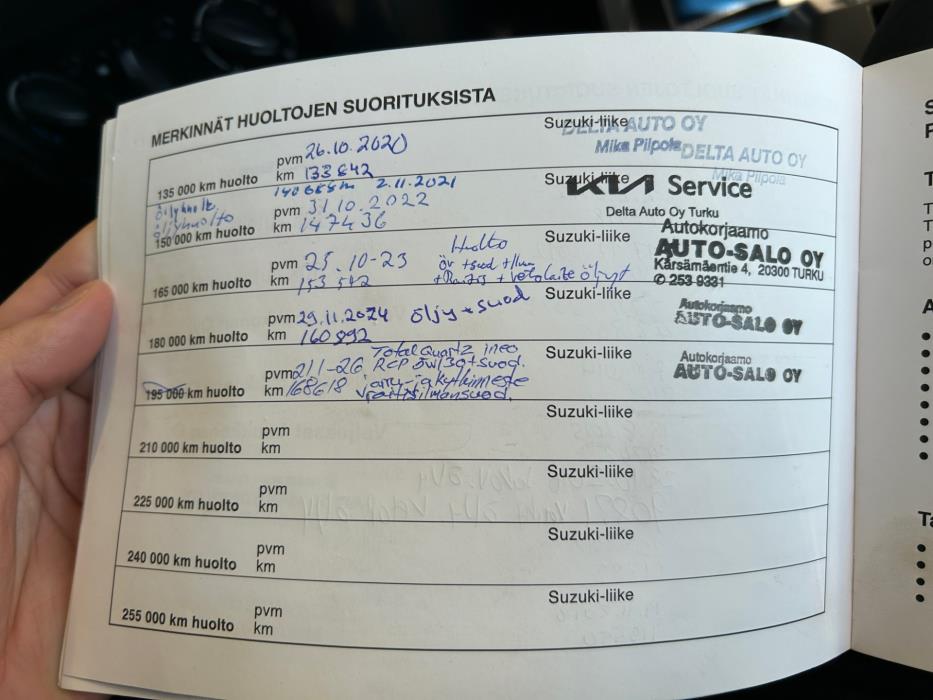 MERKINNÄT HUOLTOJEN SUORITUKSISTA
135 000 km huolto
pvm 26.10.2020
km 133 842
Suzuki-liike
DELTA AUTO OY
Mika Pilpola
DELTA AUTO OY
Mika Pilpola
2.11.2021
öljyhuolto
150 000 km huolto
pvm 31.10.2022
km 147436
Suzuki-liike
KIA Service
Delta Auto Oy Turku
165 000 km huolto
pvm 25.10-23
km 153 542
Huolto
öv +suod
Suzuki-liike
Autokorjaamo
AUTO-SALO OY
Kärsämäentie 4, 20300 TURKU
✆ 253 9331
180 000 km huolto
pvm 29.11.2024 öljy + suod
km 160892
Suzuki-liike
Autokorjaamo
AUTO-SALO OY
195 000 km huolto
pvm 2/1-26
km 168618
Total Quartz ineo
RCP 5w/30+suod.
jarru- ja kytkinneste
raitisilmansuod.
Suzuki-liike
Autokorjaamo
AUTO-SALO OY
210 000 km huolto
pvm
km
Suzuki-liike
225 000 km huolto
pvm
km
Suzuki-liike
240 000 km huolto
pvm
km
Suzuki-liike
255 000 km huolto
pvm
km
Suzuki-liike